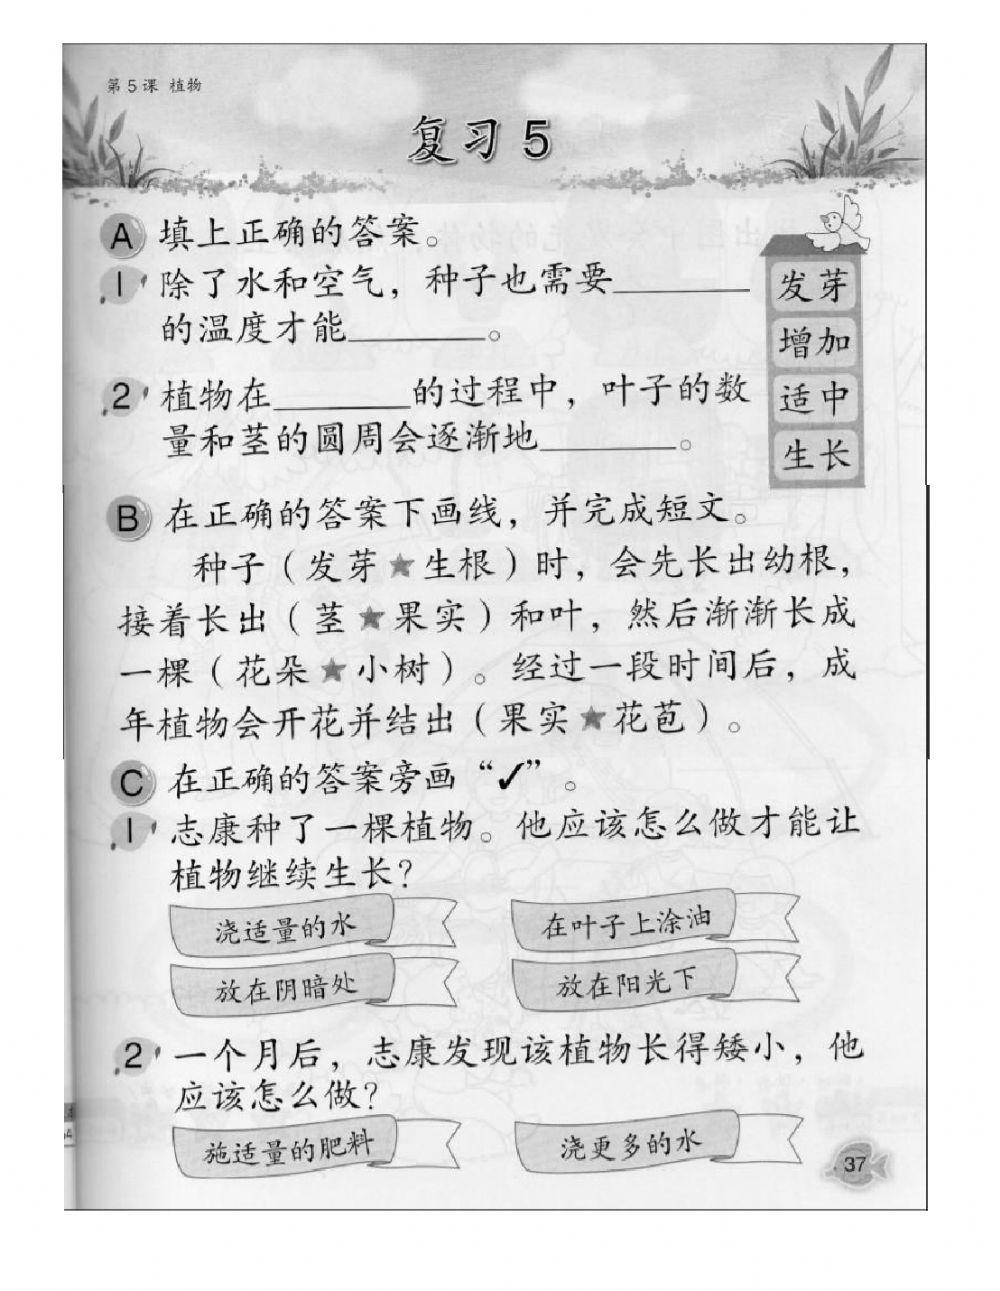 第5课 植物
复习 5
A 填上正确的答案。
1 除了水和空气，种子也需要________
的温度才能________。
2 植物在________的过程中，叶子的数
量和茎的圆周会逐渐地________。
发芽
增加
适中
生长
B 在正确的答案下画线，并完成短文。
种子（发芽★生根）时，会先长出幼根，
接着长出（茎★果实）和叶，然后渐渐长成
一棵（花朵★小树）。经过一段时间后，成
年植物会开花并结出（果实★花苞）。
C 在正确的答案旁画“✓”。
1 志康种了一棵植物。他应该怎么做才能让
植物继续生长？
浇适量的水
在叶子上涂油
放在阴暗处
放在阳光下
2 一个月后，志康发现该植物长得矮小，他
应该怎么做？
施适量的肥料
浇更多的水
37